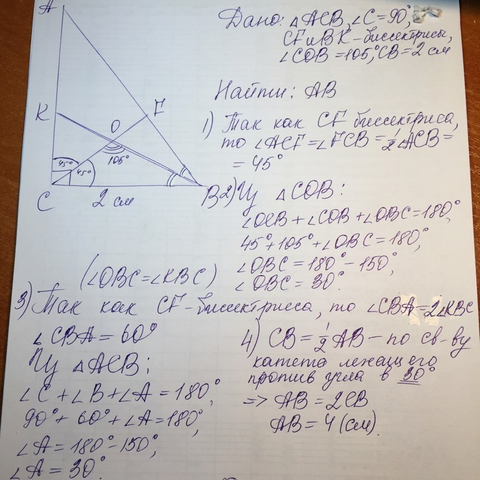 Дано: △ACB, ∠C=90°,
CF и BK - биссектрисы,
∠COB=105°, CB=2 см
Найти: AB
1) Так как CF биссектриса,
то ∠ACF=∠FCB=½∠ACB=
=45°
A
K
F
O
45°
45°
105°
C
2 см
B
2) Из △COB:
∠OCB+∠COB+∠OBC=180°,
45°+105°+∠OBC=180°,
∠OBC=180°-150°,
∠OBC=30°.
(∠OBC=∠KBC)
3) Так как CF-биссектриса, то ∠CBA=2∠KBC
∠CBA=60°
Из △ACB:
∠C+∠B+∠A=180°,
90°+60°+∠A=180°,
∠A=180°-150°,
∠A=30°.
4) CB=½AB - по св-ву
катета лежащего
против угла в 30°
=> AB=2CB
AB=4 (см).